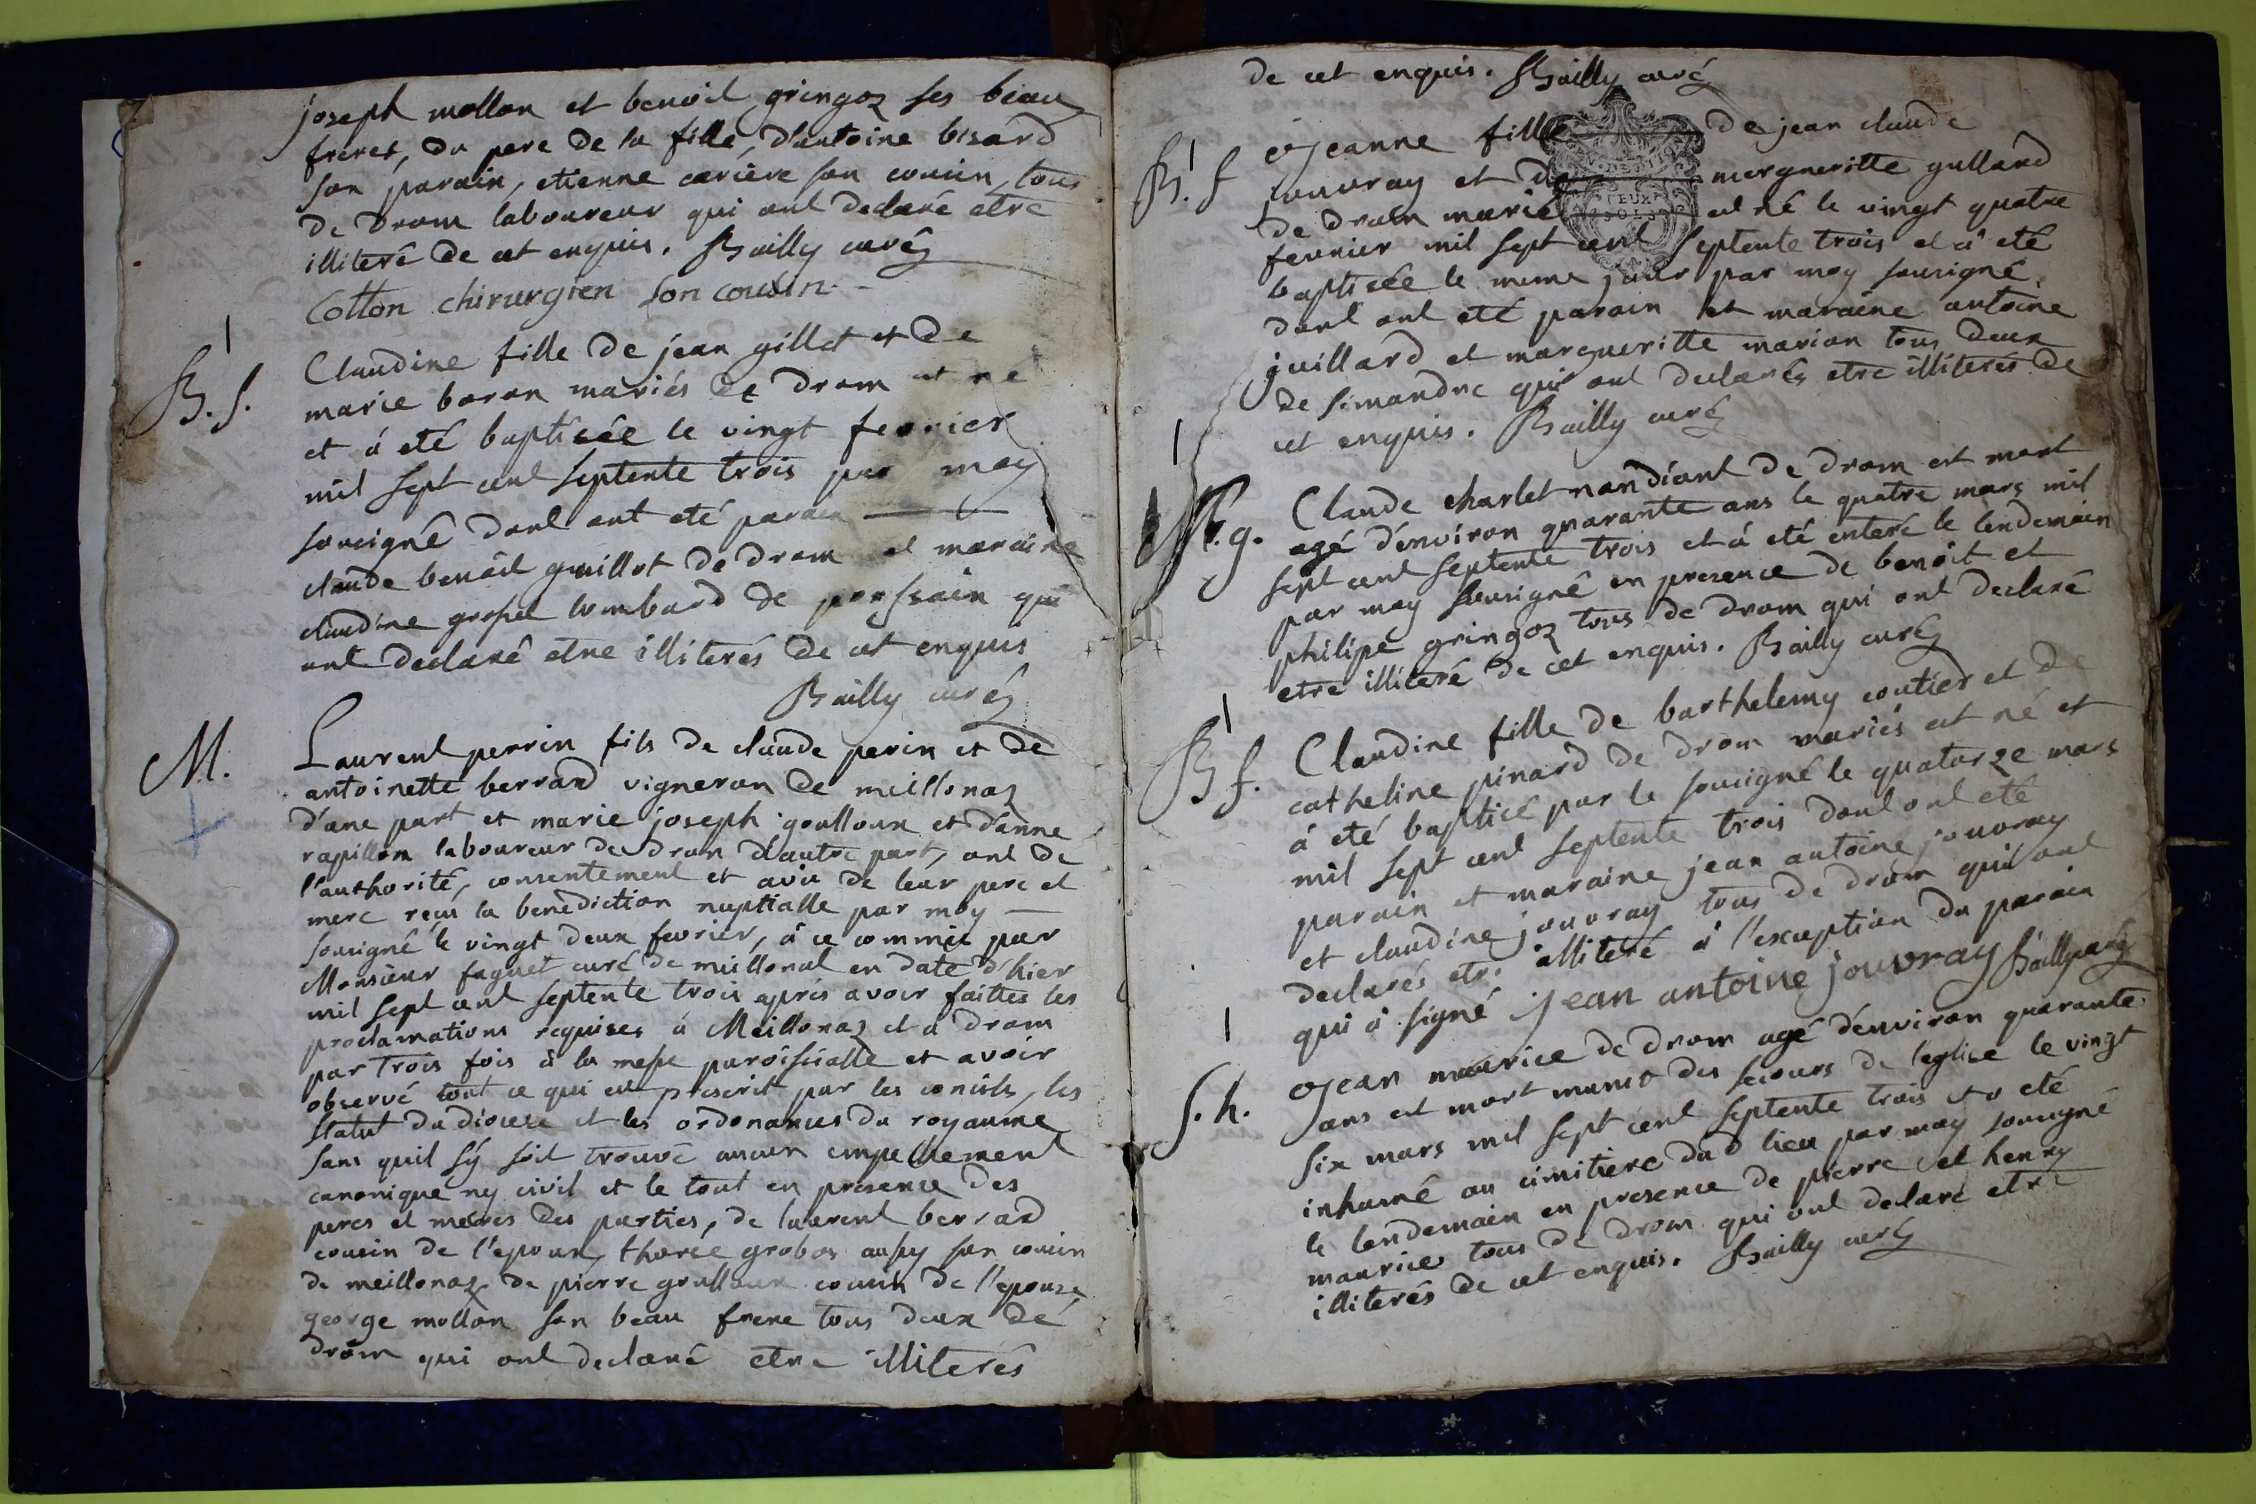 joseph mollon et benoit gringoz ses beau
freres, du pere de la fille, d'antoine bisard
son parain, etienne cariere son cousin, tous
de drom laboureur qui ont declaré etre
illiteré de cet enquis. Bailly curé
Cotton chirurgien son cousin
B. f.
Claudine fille de jean gillet et de
marie baron mariés de drom est né
et á eté baptisée le vingt fevrier
mil sept cent septente trois par moy
sousigné dont ont eté parain
claude benoit guillot de drom et maraine
claudine lombard de qui
ont declaré etre illiterés de cet enquis
Bailly curé
M.
Laurent perrin fils de claude perin et de
antoinette berrard vigneron de meillonaz
d'une part et marie joseph goulloux et d'anne
rapillon laboureur de drom d'autre part, ont de
l'authorité, consentement et avis de leur pere et
mere reçu la benediction nuptialle par moy
sousigné le vingt deux fevrier, á ce commis par
Monsieur faguet curé de meillonat en date d'hier
mil sept cent septente trois aprés avoir faittes les
proclamations requises á Meillonaz et a drom
par trois fois á la messe paroissialle et avoir
observé tout ce qui est prescrit par les conciles, les
statut du diocese et les ordonances du royaume
sans quil sy soit trouvé aucun empechement
canonique ny civil et le tout en presence des
peres et meres des parties, de laurent berrard
cousin de l'epoux, grobos aussy son cousin
de meillonaz, de pierre goulloux cousin de l'epouse
george mollon son beau frere tous deux de
drom qui ont declaré etre illiterés
de cet enquis. Bailly curé
B. f
jeanne fille de jean claude
jouvray et de marguerite gullard
de drom mariés est né le vingt quatre
fevrier mil sept cent septente trois et á eté
baptisée le meme jour par moy sousigné
dont ont eté parain et maraine antoine
juillard et margueritte marion tous deux
de simandre qui ont declarés etre illiterés de
cet enquis. Bailly curé
S. g.
Claude charlet mandiant de drom est mort
agé d'environ quarante ans le quatre mars mil
sept cent septente trois et á eté enteré le lendemain
par moy sousigné en presence de benoit et
philipe gringoz tous de drom qui ont declaré
etre illiteré de cet enquis. Bailly curé
B f.
Claudine fille de barthelemy coutier et de
catheline pinard de drom mariés est né et
á eté baptisé par le sousigné le quatorze mars
mil sept cent septente trois dont ont eté
parain et maraine jean antoine jouvray
et claudine jouvray tous de drom qui ont
declarés etre illiteré á l'exception du parain
qui á signé jean antoine jouvray Bailly curé
S. h.
jean maurice de drom agé d'environ quarante
ans est mort munis des secours de l'eglise le vingt
six mars mil sept cent septente trois et a eté
inhumé au cimitiere dud lieu par moy sousigné
le lendemain en presence de pierre et henry
maurice tous de drom qui ont declaré etre
illiterés de cet enquis. Bailly curé